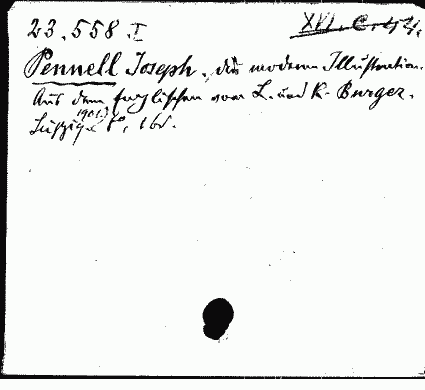 23.558.I XVI.C.44.
Pennell Joseph, die moderne Illustration.
Aus dem Englischen von L. und K. Burger.
Leipzig 1901. 8°,